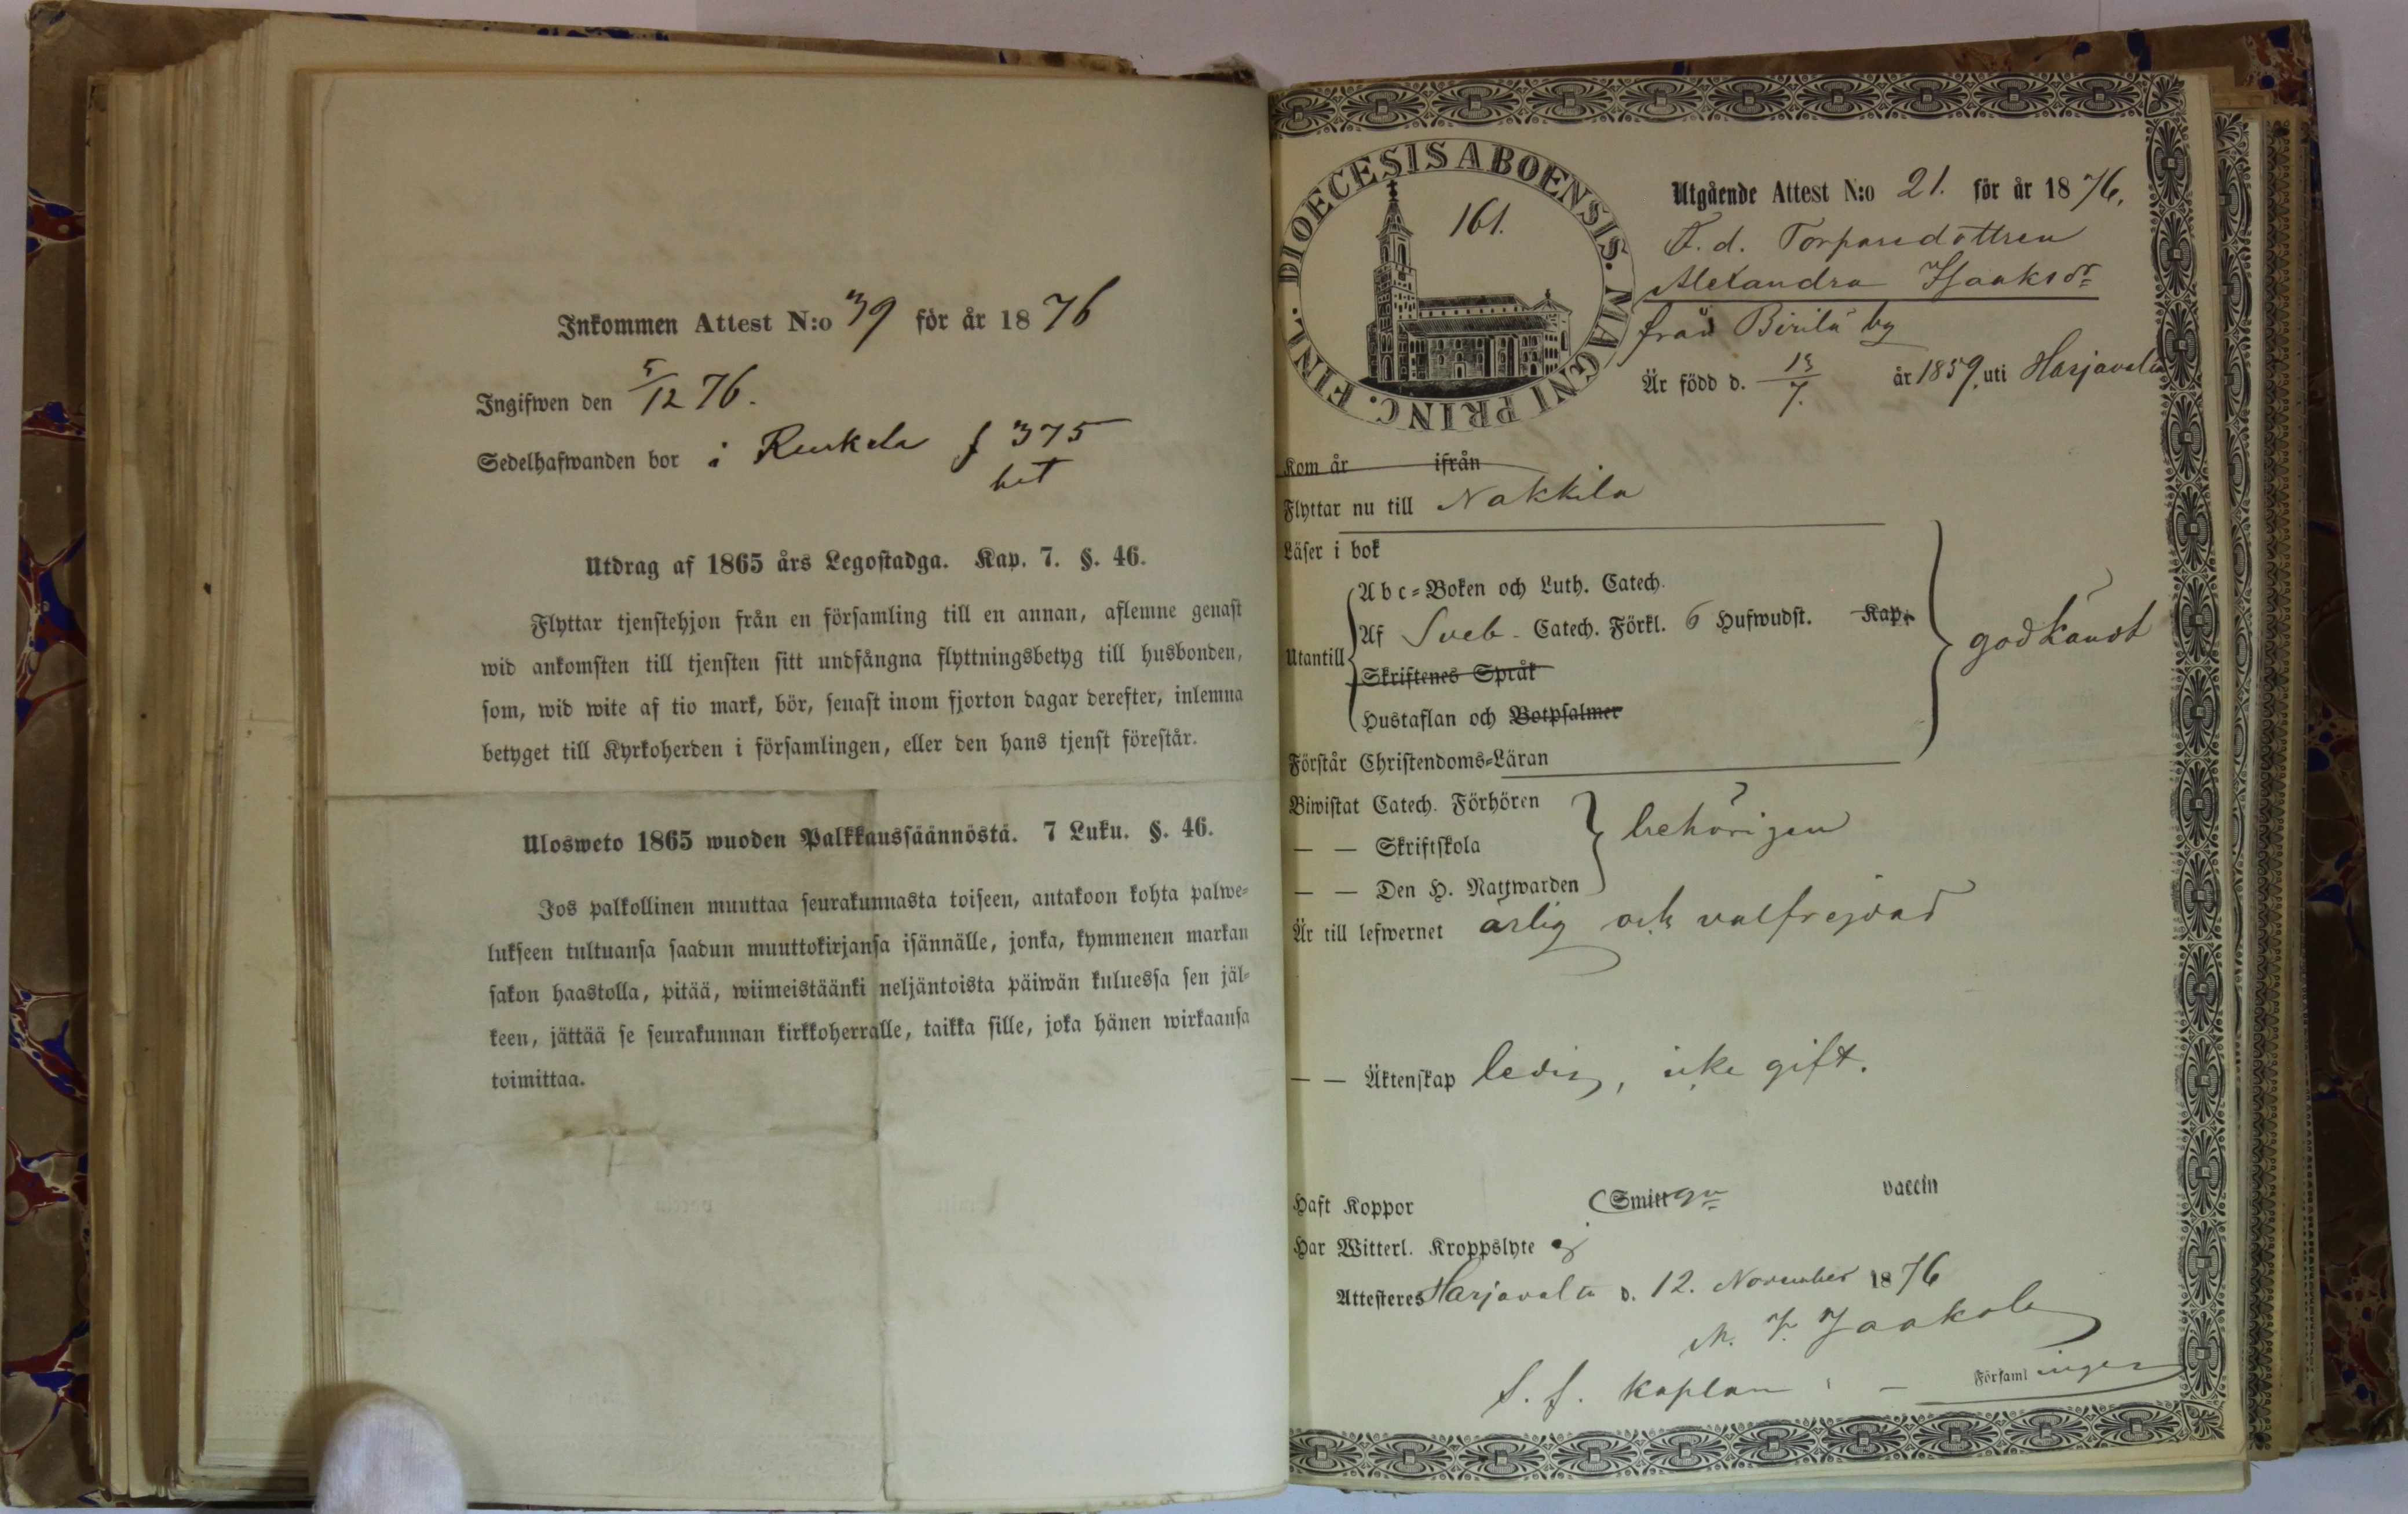 Inkommen Attest N:o 39 för år 1876
Ingifwen den 5/12 76.
Sedelhafwanden bor i Ruskela f 375
bet
Utdrag af 1865 års Legostadga. Kap. 7. §. 46.
Flyttar tjenstehjon från en församling till en annan, aflemne genast
wid ankomsten till tjensten sitt undfångna flyttningsbetyg till husbonden,
som, wid wite af tio mark, bör, senast inom fjorton dagar derefter, inlemna
betyget till Kyrkoherden i församlingen, eller den hans tjenst förestår.
Ulosweto 1865 wuoden Palkkaussäännöstä. 7 Luku. §. 46.
Jos palkollinen muuttaa seurakunnasta toiseen, antakoon kohta palwe-
lukseen tultuansa saadun muuttokirjansa isännälle, jonka, kymmenen markan
sakon haastolla, pitää, wiimeistäänki neljäntoista päiwän kuluessa sen jäl-
keen, jättää se seurakunnan kirkkoherralle, taikka sille, joka hänen wirkaansa
toimittaa.
DIOECESIS ABOENSIS. MAGNI PRINC. FINL.
161.
Utgående Attest N:o 21. för år 1876.
F. d. Torparedottren
Alexandra Isaksdr
från Pirilä by
Är född d. 13/7. år 1859, uti Harjavalta
Kom år ifrån
Flyttar nu till Nakkila
Läser i bok
Abc-Boken och Luth. Catech.
Utantill
Af Sveb. Catech. Förkl. 6 Hufwudst. Kap.
Skriftenes Språk
Hustaflan och Botpsalmer
godkändt
Förstår Christendoms-Läran
Biwistat Catech. Förhören
— — Skriftskola
— — Den H. Nattwarden
behörigen
Är till lefwernet ärlig och välfrejdad
— — Äktenskap ledig, icke gift.
Haft Koppor Smitt vaccin
Har Witterl. Kroppslyte ej
Attesteres Harjavalta d. 12. November 1876
S. f. Kaplan Församlingen